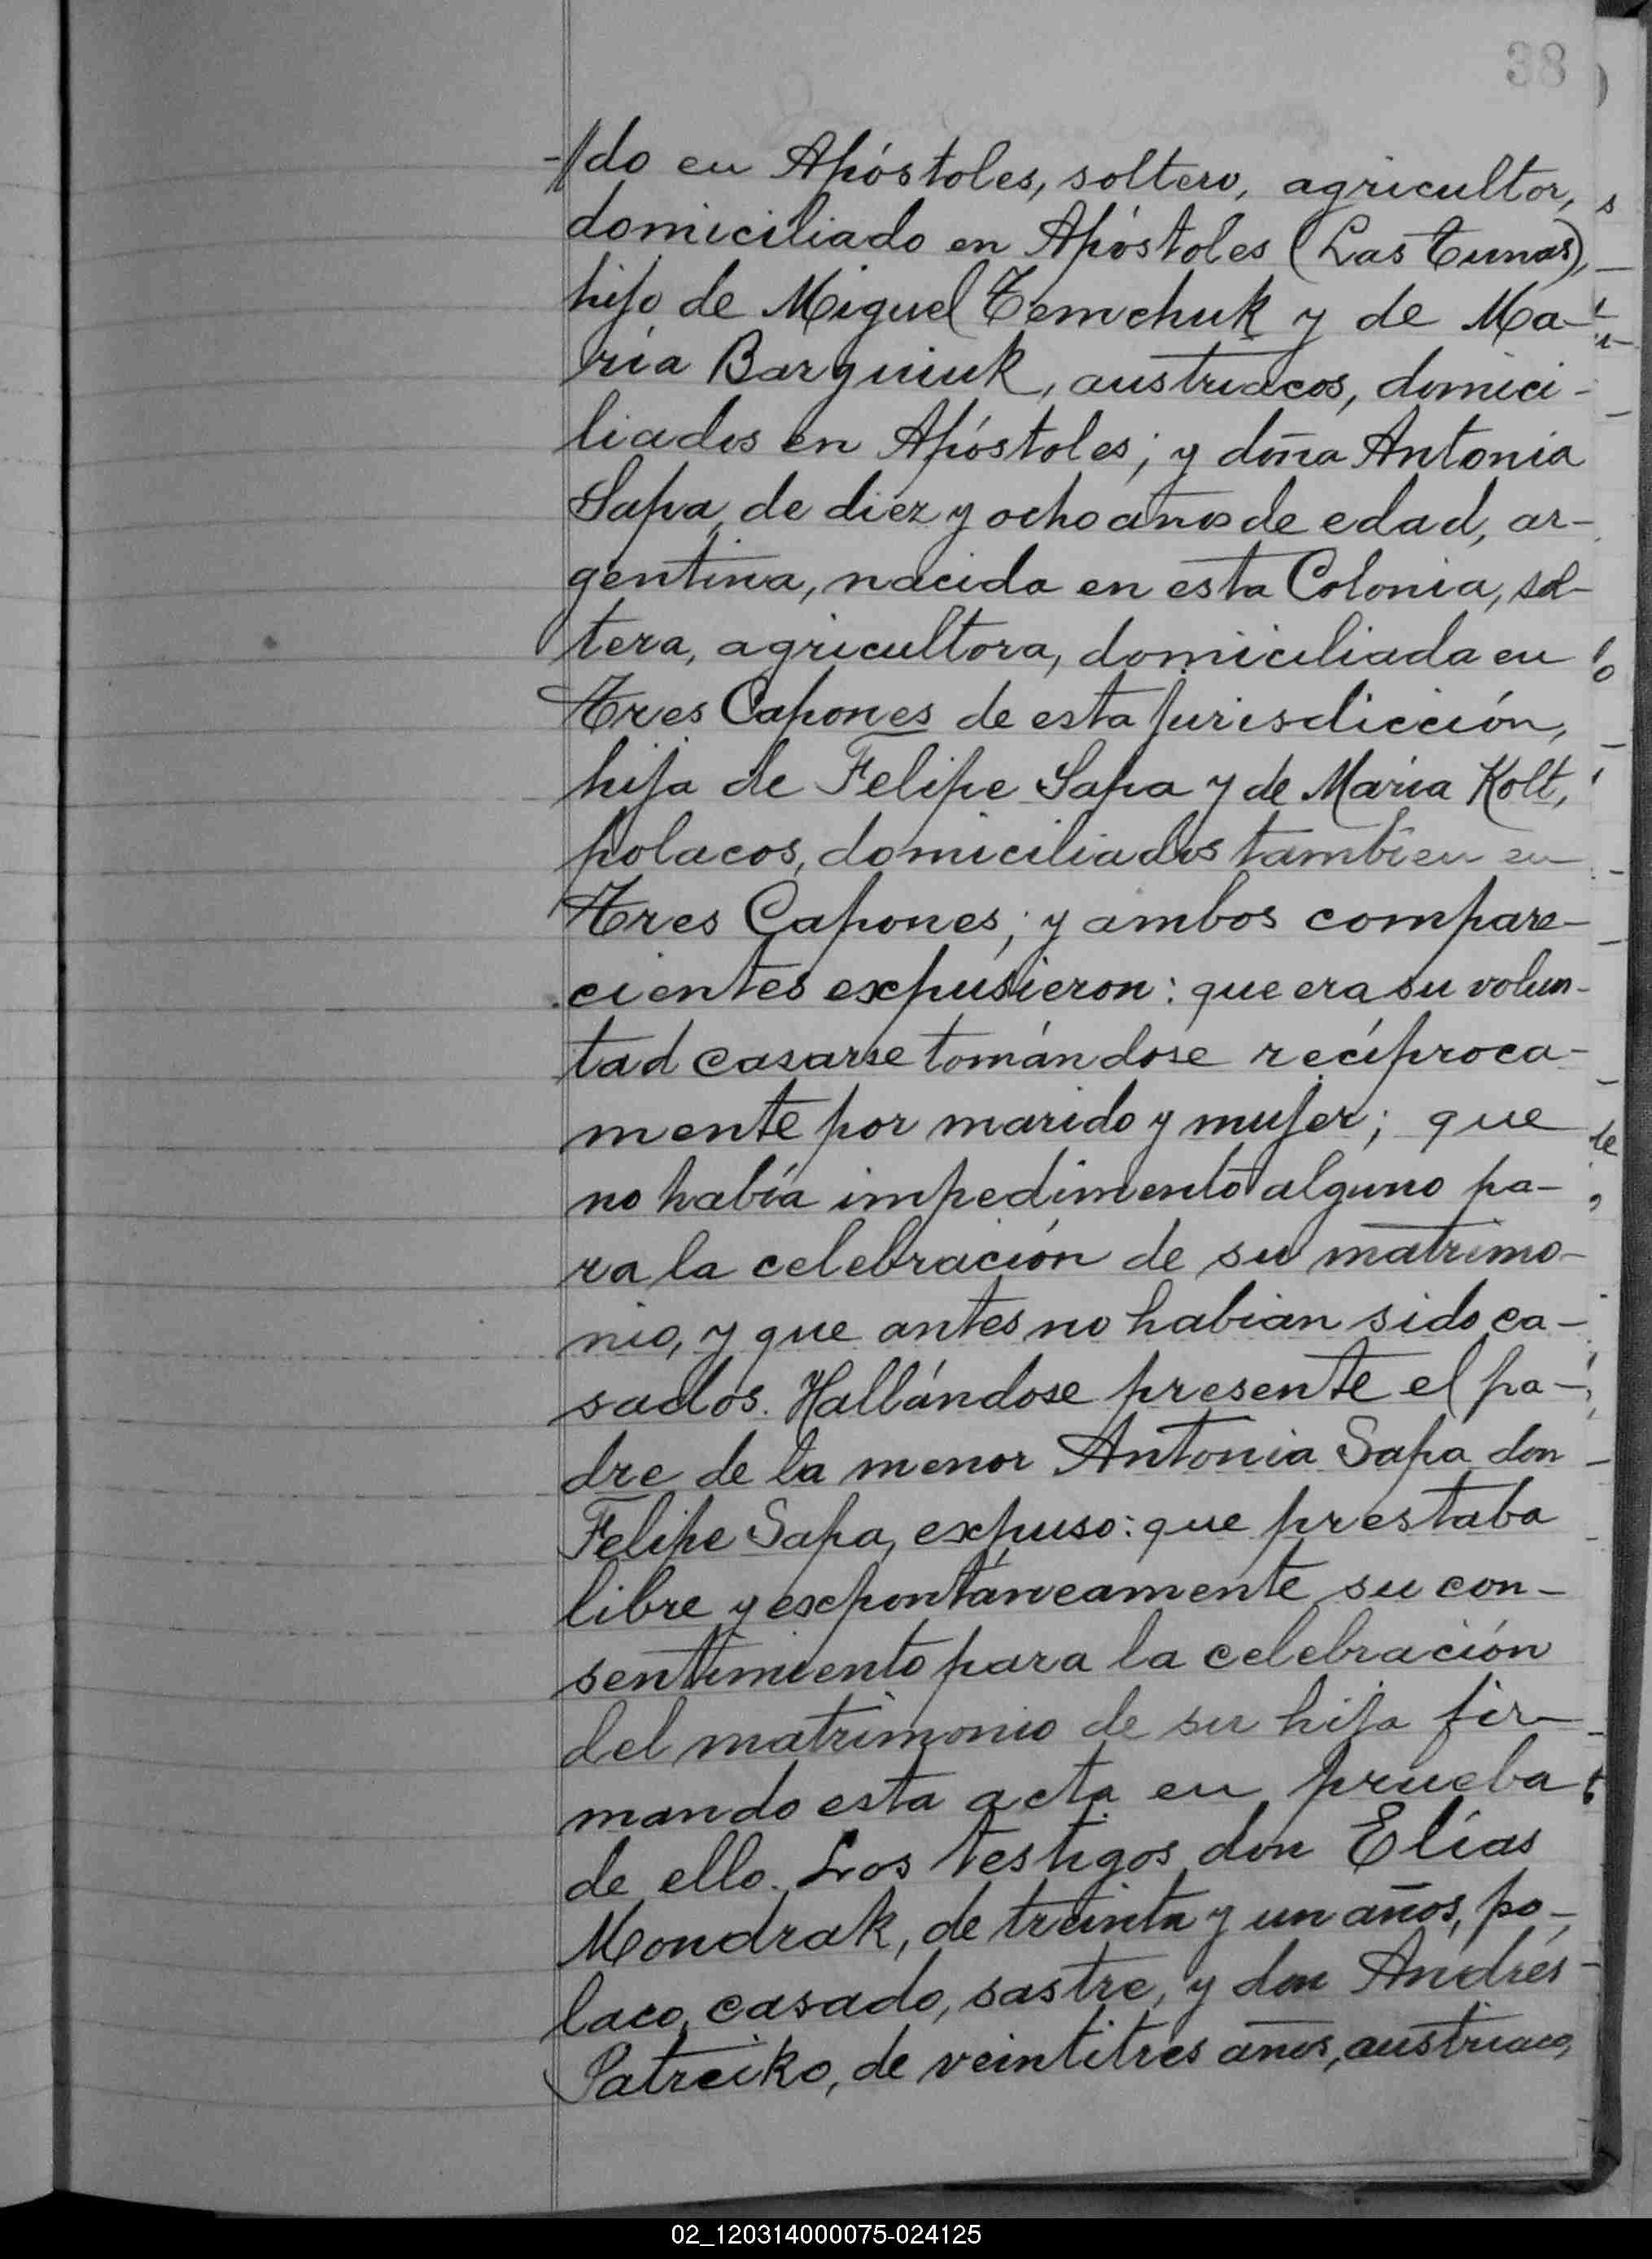 38
-//do en Apóstoles, soltero, agricultor,
domiciliado en Apóstoles (Las Tunas),
hijo de Miguel Temchuk y de Ma-
ría Barguiuk, austriacos, domici-
liados en Apóstoles; y doña Antonia
Sapa, de diez y ocho años de edad, ar-
gentina, nacida en esta Colonia, sol-
tera, agricultora, domiciliada en
Tres Capones de esta jurisdicción,
hija de Felipe Sapa y de María Kolt,
polacos, domiciliados tambien en
Tres Capones; y ambos compare-
cientes expusieron: que era su volun-
tad casarse tomándose recíproca-
mente por marido y mujer; que
no había impedimento alguno pa-
ra la celebración de su matrimo-
nio, y que antes no habian sido ca-
sados. Hallándose presente el pa-
dre de la menor Antonia Sapa don
Felipe Sapa, expuso: que prestaba
libre y expontáneamente su con-
sentimiento para la celebración
del matrimonio de su hija fir-
mando esta acta en prueba
de ello. Los testigos don Elías
Mondrak, de treinta y un años, po-
laco, casado, sastre, y don Andrés
Patreiko, de veintitres años, austriaco,
02_120314000075-024125